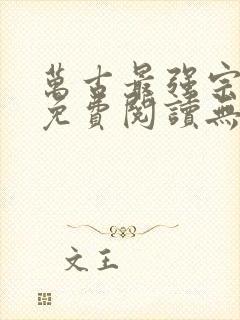 萬古最强宗
免費閱讀無
文王